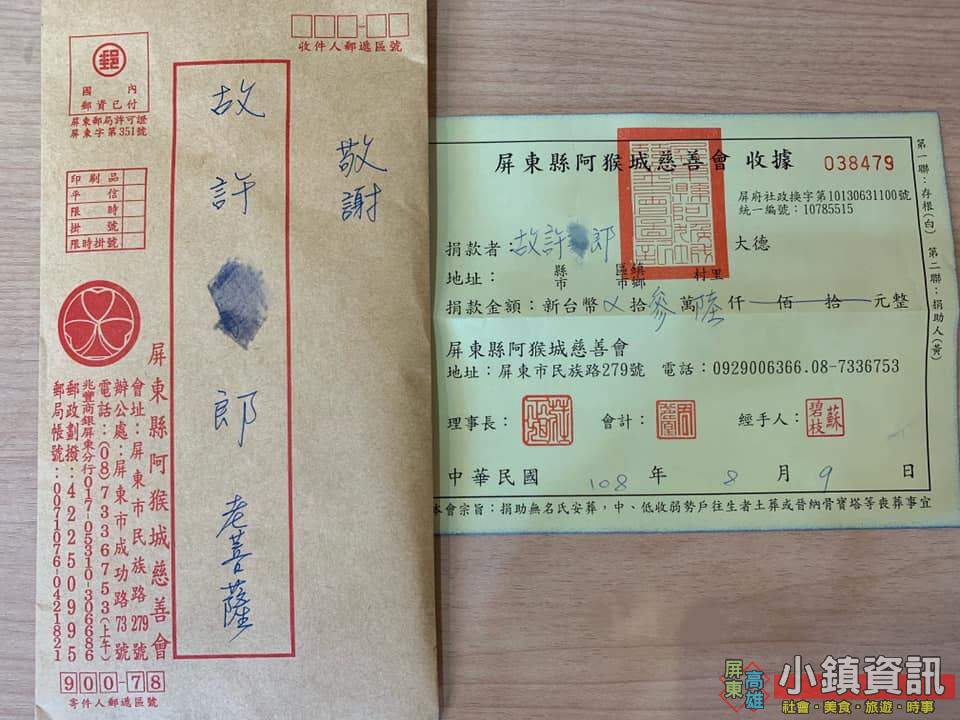 收件人郵遞區號
郵
國內
郵資已付
屏東郵局許可證
屏東字第351號
印刷品
平信
限時
掛號
限時掛號
敬謝
故許郎老菩薩
屏東縣阿猴城慈善會
會址:屏東市民族路279號
辦公處:屏東市成功路73號
電話:(08)7336753(上午)
兆豐商銀屏東分行017-05310-306686
郵政劃撥:42250995
郵局帳號:0071076-0421821
900-78
寄件人郵遞區號
屏東縣阿猴城慈善會 收據 038479
屏府社政換字第10130631100號
統一編號:10785515
捐款者:故許郎 大德
地址: 縣市 區鎮市鄉 村里
捐款金額:新台幣 拾參萬陸仟 佰 拾 元整
屏東縣阿猴城慈善會
地址:屏東市民族路279號 電話:0929006366.08-7336753
理事長: 會計: 經手人:蘇碧枝
中華民國 108 年 8 月 9 日
本會宗旨:捐助無名氏安葬,中、低收弱勢戶往生者土葬或晉納骨寶塔等喪葬事宜
第一聯:存根(白) 第二聯:捐助人(黃)
屏東 高雄 小鎮資訊
社會·美食·旅遊·時事